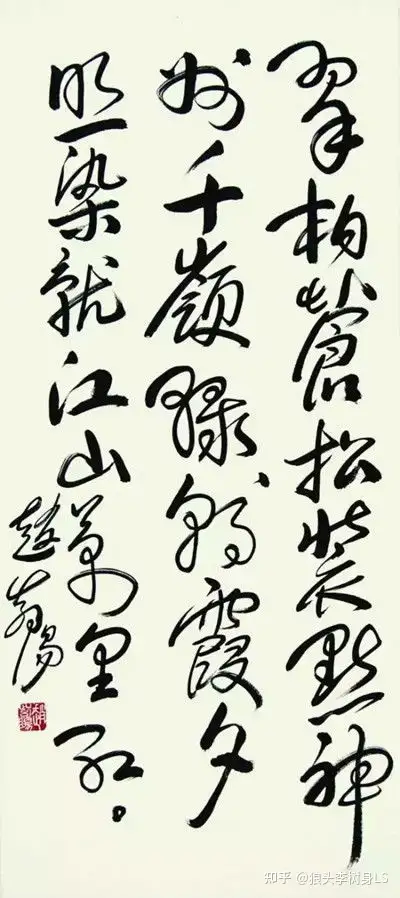 翠柏蒼松裝點神
州千嶺緑朝霞夕
照染就江山萬里紅
趙
知乎 @狼头李树身LS